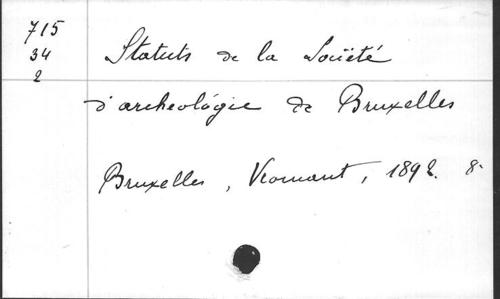 715
34
2
Statuts de la Société
d'archeológie de Bruxelles
Bruxelles, Vromant, 1898. 8-